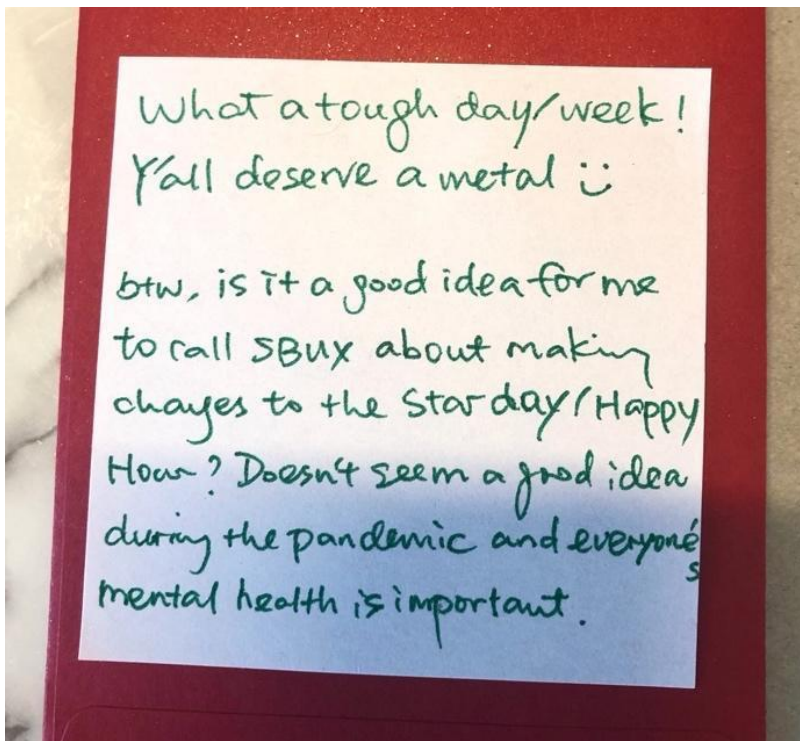 What a tough day/week!
Y'all deserve a metal :)
btw, is it a good idea for me
to call SBUX about making
changes to the Star day/Happy
Hour? Doesn't seem a good idea
during the pandemic and everyone's
mental health is important.